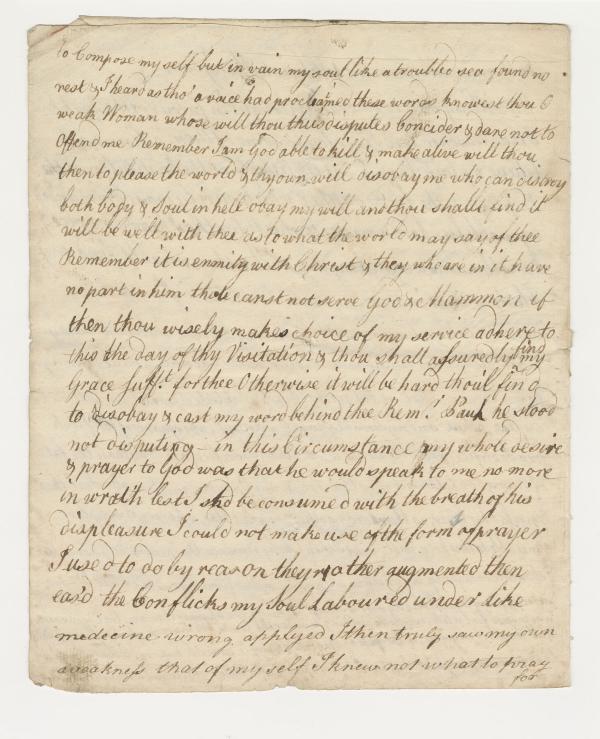 to Compose my self but in vain my soul like a troubled sea found no
rest & I heard as tho' a voice had proclaimed these words knowest thou O
weak Woman whose will thou thus disputes Concider & dare not to
Offend me Remember I am God able to kill & make alive will thou
then to please the world & thy own will disobay me who can distroy
both body & Soul in hell obay my will and thou shalt find it
will be well with thee as to what the world may say of thee
Remember it is enmity with Christ & they who are in it have
no part in him thou canst not serve God & Mammon if
then thou wisely makes choice of my service adhere to
this the day of thy Visitation & thou shall assuredly find my
Grace Suff.t for thee Otherwise it will be hard thou'l find
to disobay & cast my word behind thee Rem.r Paul he stood
not disputing – in this Circumstance my whole desire
& prayer to God was that he would speak to me no more
in wrath lest I shd be consumed with the breath of his
displeasure I could not make use of the form of prayer
I used to do by reason they rather augmented then
eas'd the Conflicks my Soul Laboured under like
medecine wrong applyed I then truly saw my own
weakness that of my self I knew not what to pray
for